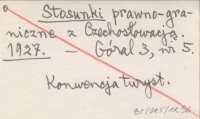 Stosunki prawno-gra-
niczne z Czechosłowacją.
1927. — Góral 3, nr 5.
Konwencja turyst.